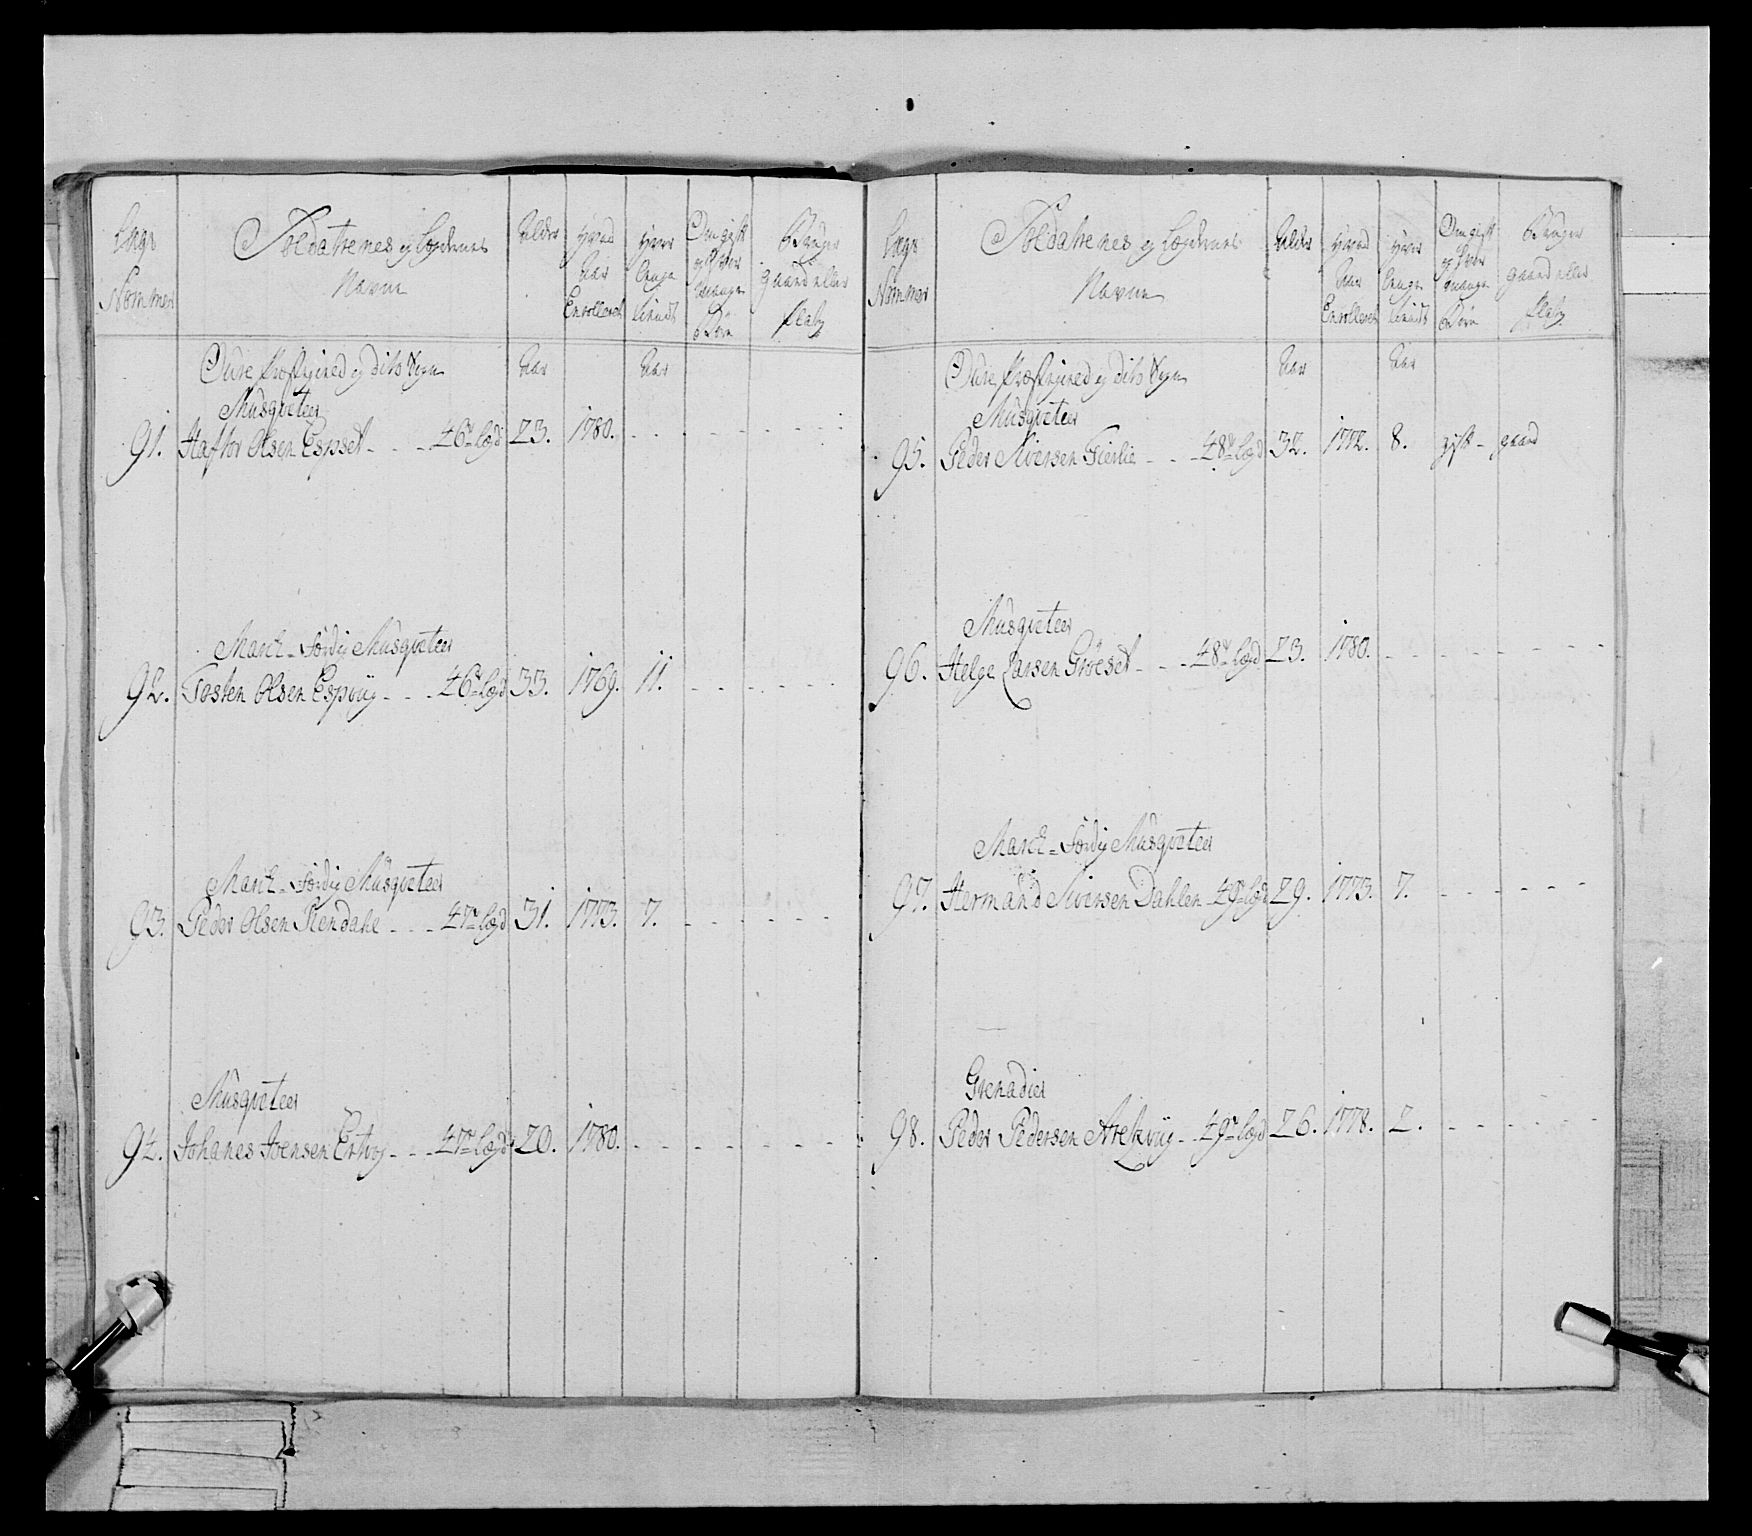 Lægs Nommer
Soldaternes og Lægdernes Navne
Alder
Hvad Aar Enrolleret
Hvor lenge tient
Om gift og hvor mange Børn
Bruger gaard eller Platz
Øure Præstegield og dito Sogn
Aar
Aar
Musqveteer
91. Haftor Olsen Espset - - - 46de Lægd 23. 1780. - - - - - -
March-Færdig Musqveteer
92. Tosten Olsen Espvig - - - 46de Lægd 33. 1769. 11. - - - - - -
March-Færdig Musqveteer
93. Peder Olsen Stendahl - - - 47de Lægd 31. 1773. 7. - - - - - -
Musqveteer
94. Johanes Joensen - - - 47de Lægd 20. 1780. - - - - - -
Lægs Nommer
Soldaternes og Lægdernes Navne
Alder
Hvad Aar Enrolleret
Hvor lenge tient
Om gift og hvor mange Børn
Bruger gaard eller Platz
Øure Præstegield og dito Sogn
Aar
Aar
Musqveteer
95. Peder Siversen Fierlie - - - 48de Lægd 32. 1772. 8. gift - gaard
Musqveteer
96. Helge Larsen Gröeset - - - 48de Lægd 23. 1780. - - - - - -
March-Færdig Musqveteer
97. Hermand Siversen Dahlen - 49de Lægd 29. 1773. 7. - - - - - -
Grenadier
98. Peder Pedersen - - 49de Lægd 26. 1778. 2. - - - - - -